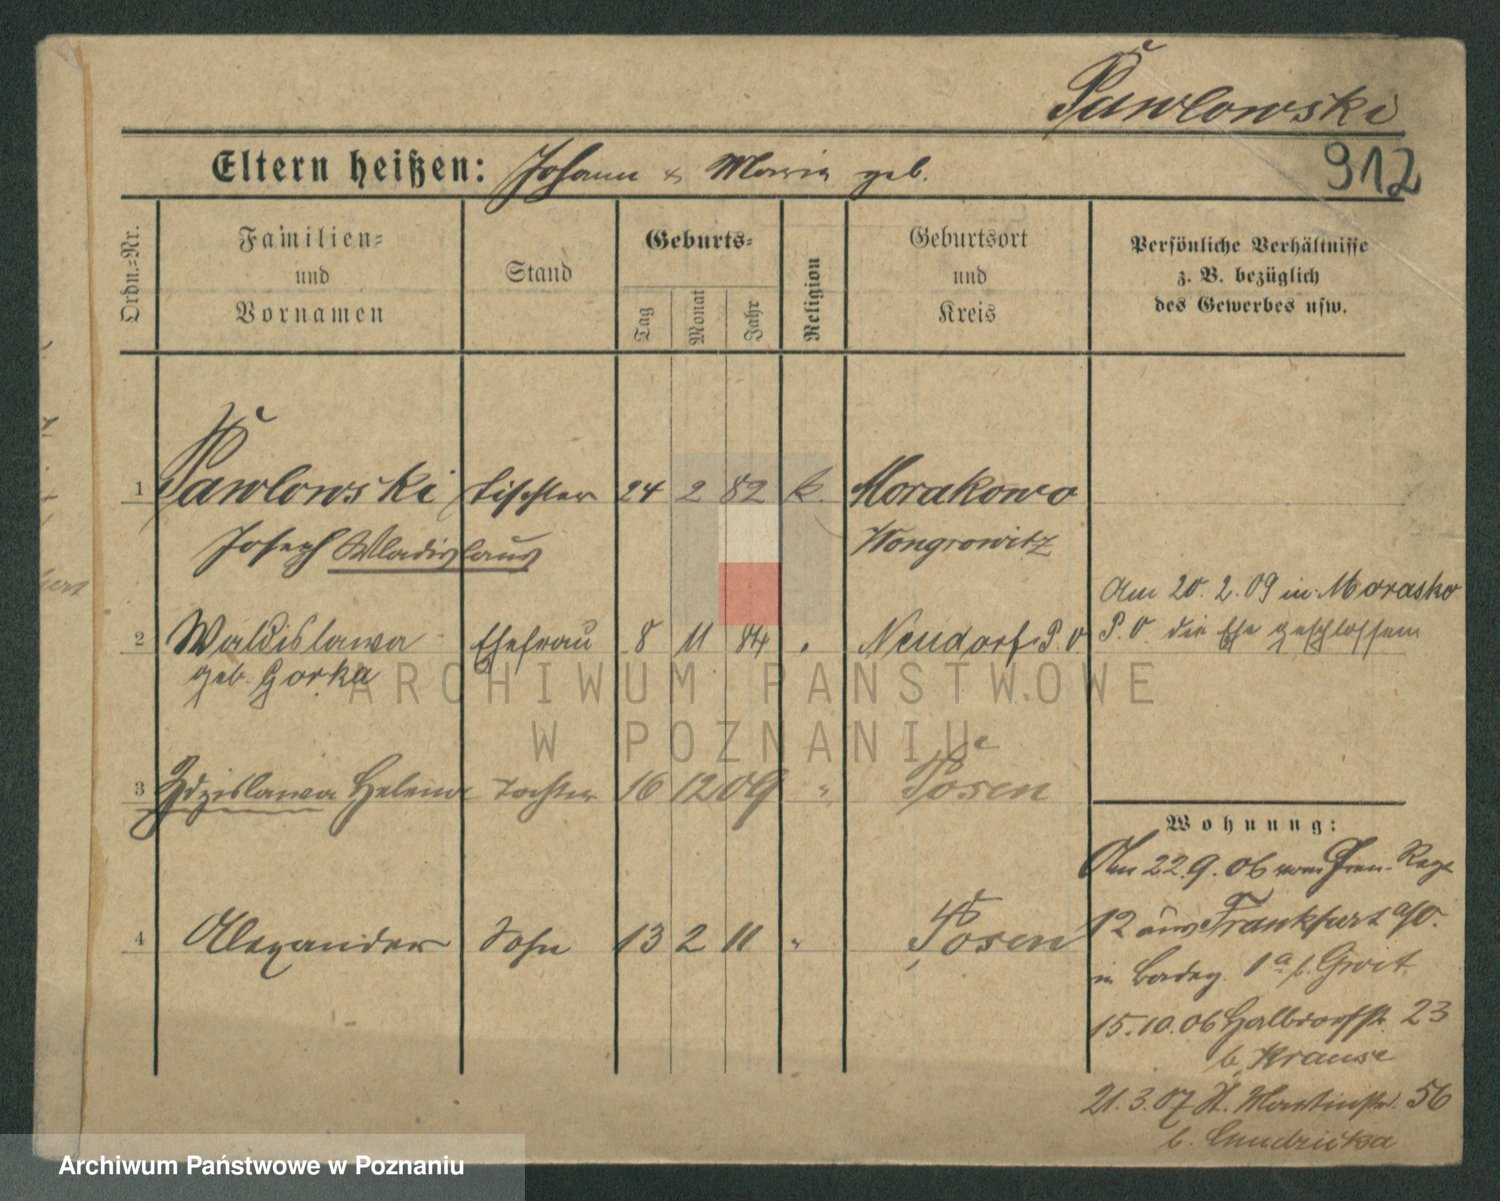 Pawlowski
Eltern heißen: Johann & Maria geb.
912
Ordn.-Nr.
Familien- und Vornamen
Stand
Geburts-
Tag
Monat
Jahr
Religion
Geburtsort und Kreis
Persönliche Verhältnisse
z. B. bezüglich
des Gewerbes usw.
1 Pawlowski Tischler 24 2 82 k. Morakowo
Joseph Wladislaus Wongrowitz
Am 20. 2. 09 in Morasko
2 Waldislawa Ehefrau 8 11 84 " Neudorf P. O P. O. die Ehe geschlossen
geb. Gorka
3 Zdzislawa Helena Tochter 16 12 09 " Posen
Wohnung:
Am 22. 9. 06 vom Gren. Regt
4 Alexander Sohn 13 2 11 " Posen
12 aus Frankfurt a/O.
in 1a b.
15. 10. 06 23
b. Krause
21. 3. 07 St. Martinstr. 56
b.
ARCHIWUM PAŃSTWOWE
W POZNANIU
Archiwum Państwowe w Poznaniu